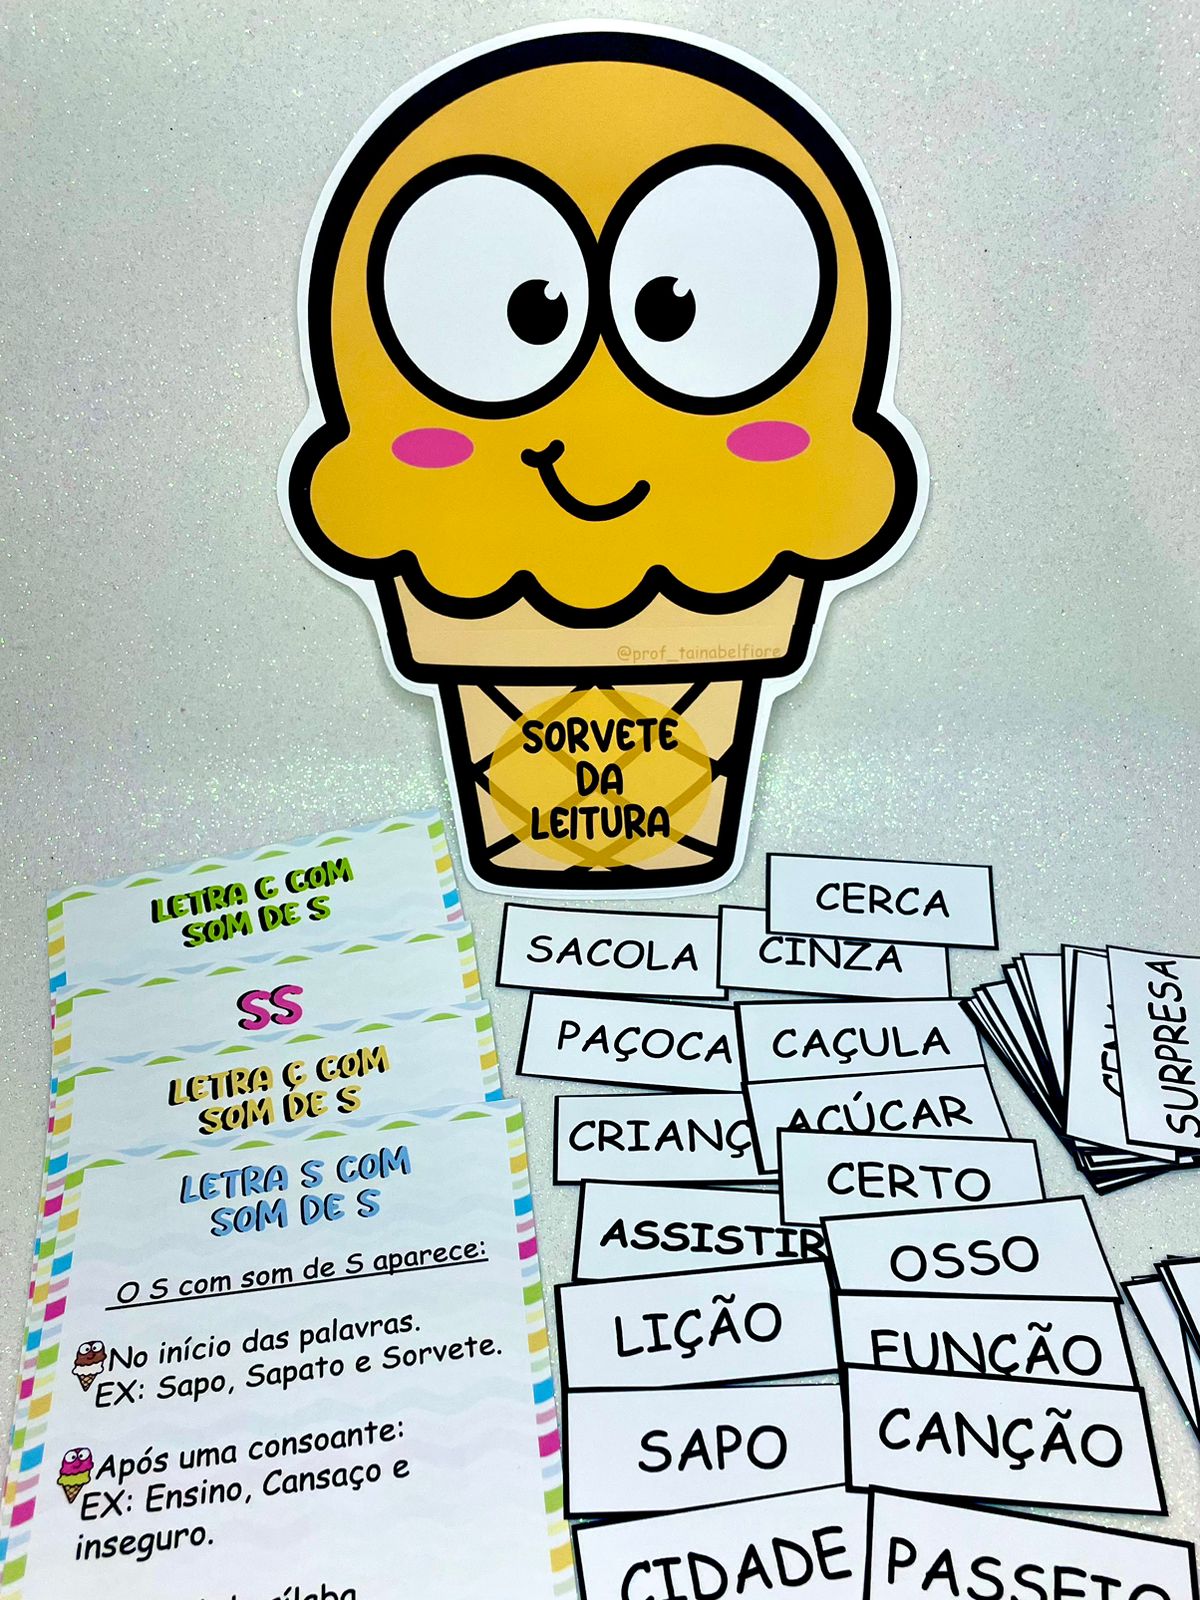 @prof_tainabelfiore
SORVETE
DA
LEITURA
LETRA C COM
SOM DE S
SS
LETRA Ç COM
SOM DE S
LETRA S COM
SOM DE S
O S com som de S aparece:
No início das palavras.
EX: Sapo, Sapato e Sorvete.
Após uma consoante:
EX: Ensino, Cansaço e
inseguro.
CERCA
SACOLA
CINZA
PAÇOCA
CAÇULA
CRIANÇ
AÇÚCAR
CERTO
ASSISTIR
OSSO
LIÇÃO
FUNÇÃO
SAPO
CANÇÃO
CIDADE
PASSEIO
SURPRESA